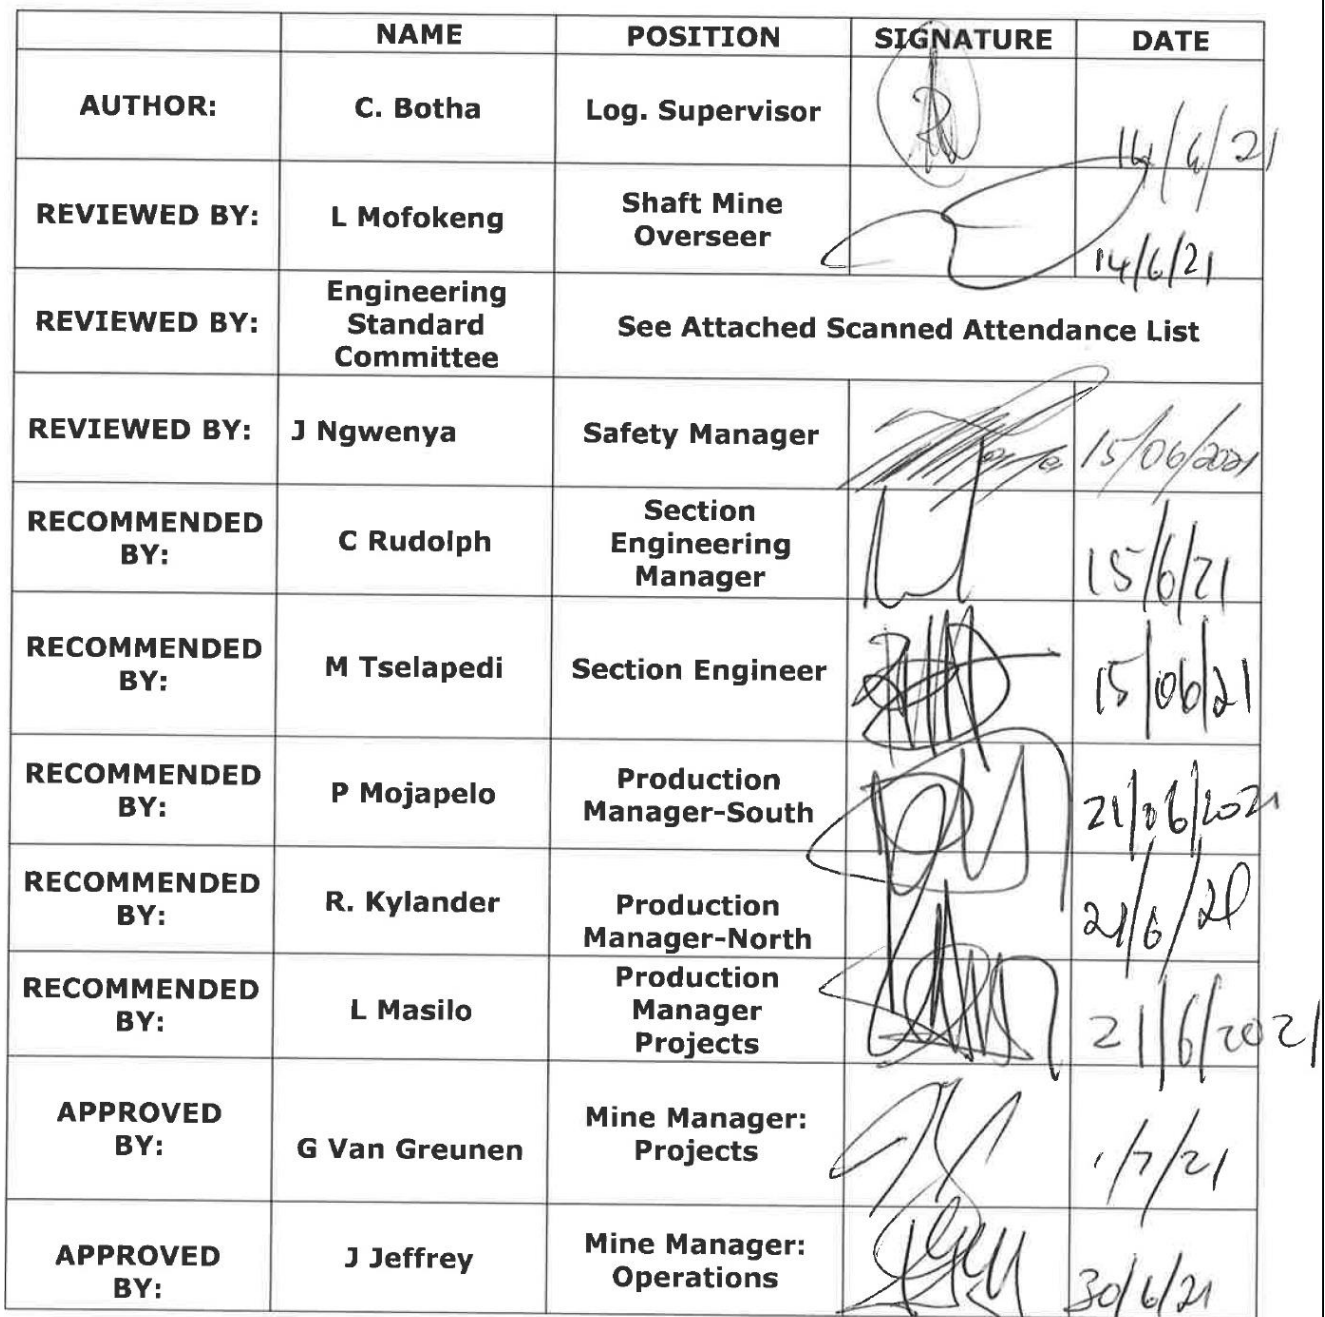 NAME POSITION SIGNATURE DATE
AUTHOR: C. Botha Log. Supervisor 14/6/21
REVIEWED BY: L Mofokeng Shaft Mine
Overseer 14/6/21
REVIEWED BY: Engineering
Standard
Committee See Attached Scanned Attendance List
REVIEWED BY: J Ngwenya Safety Manager 15/06/2021
RECOMMENDED
BY: C Rudolph Section
Engineering
Manager 15/6/21
RECOMMENDED
BY: M Tselapedi Section Engineer 15/06/21
RECOMMENDED
BY: P Mojapelo Production
Manager-South 21/06/2021
RECOMMENDED
BY: R. Kylander Production
Manager-North 21/6/
RECOMMENDED
BY: L Masilo Production
Manager
Projects 21/6/2021
APPROVED
BY: G Van Greunen Mine Manager:
Projects 1/7/21
APPROVED
BY: J Jeffrey Mine Manager:
Operations 30/6/21